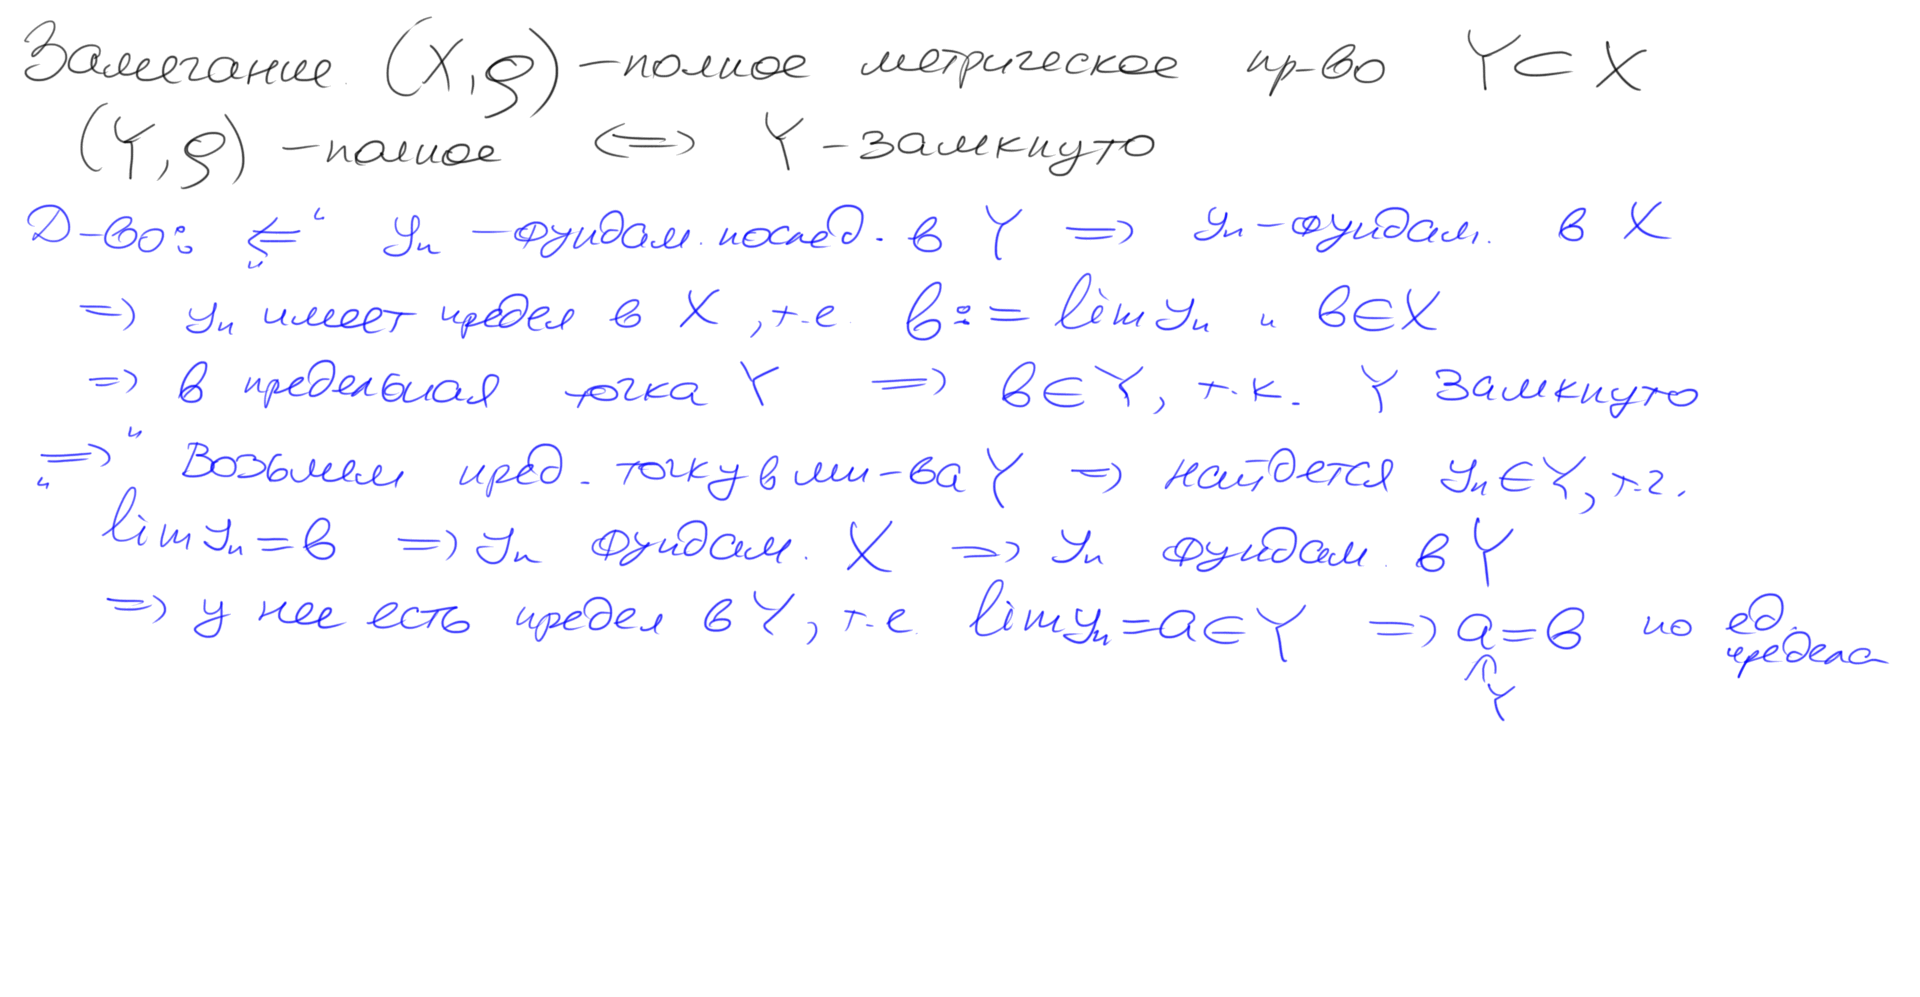 Замечание (X, ρ) – полное метрическое пр-во Y ⊂ X
(Y, ρ) – полное <=> Y – замкнуто
Д-во: „<=“ yₙ – фундам. послед. в Y => yₙ – фундам. в X
=> yₙ имеет предел в X, т.е. b := lim yₙ и b ∈ X
=> b предельная точка Y => b ∈ Y, т.к. Y замкнуто
„=>“ Возьмем пред. точку b мн-ва Y => найдется yₙ ∈ Y, т.ч.
lim yₙ = b => yₙ фундам. X => yₙ фундам. в Y
=> у нее есть предел в Y, т.е. lim yₙ = a ∈ Y => a = b по ед. предела
∈ Y